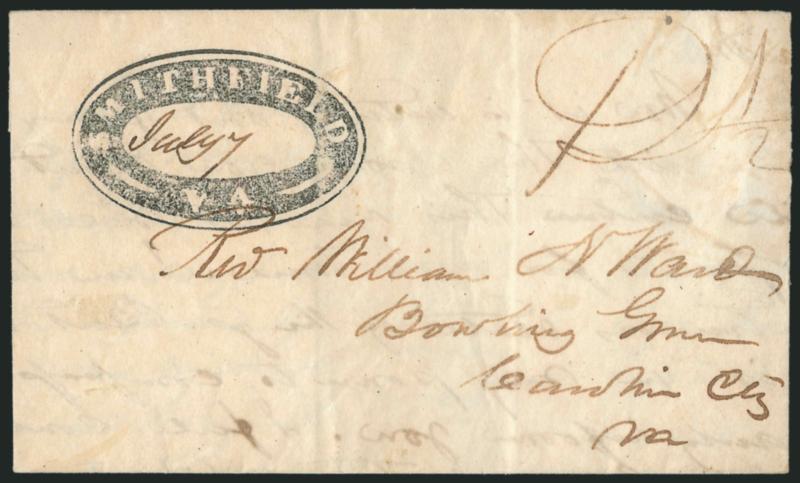 SMITHFIELD
July 7
VA
Pd
Rev William N Ward
Bowling Green
Caroline Cty
Va